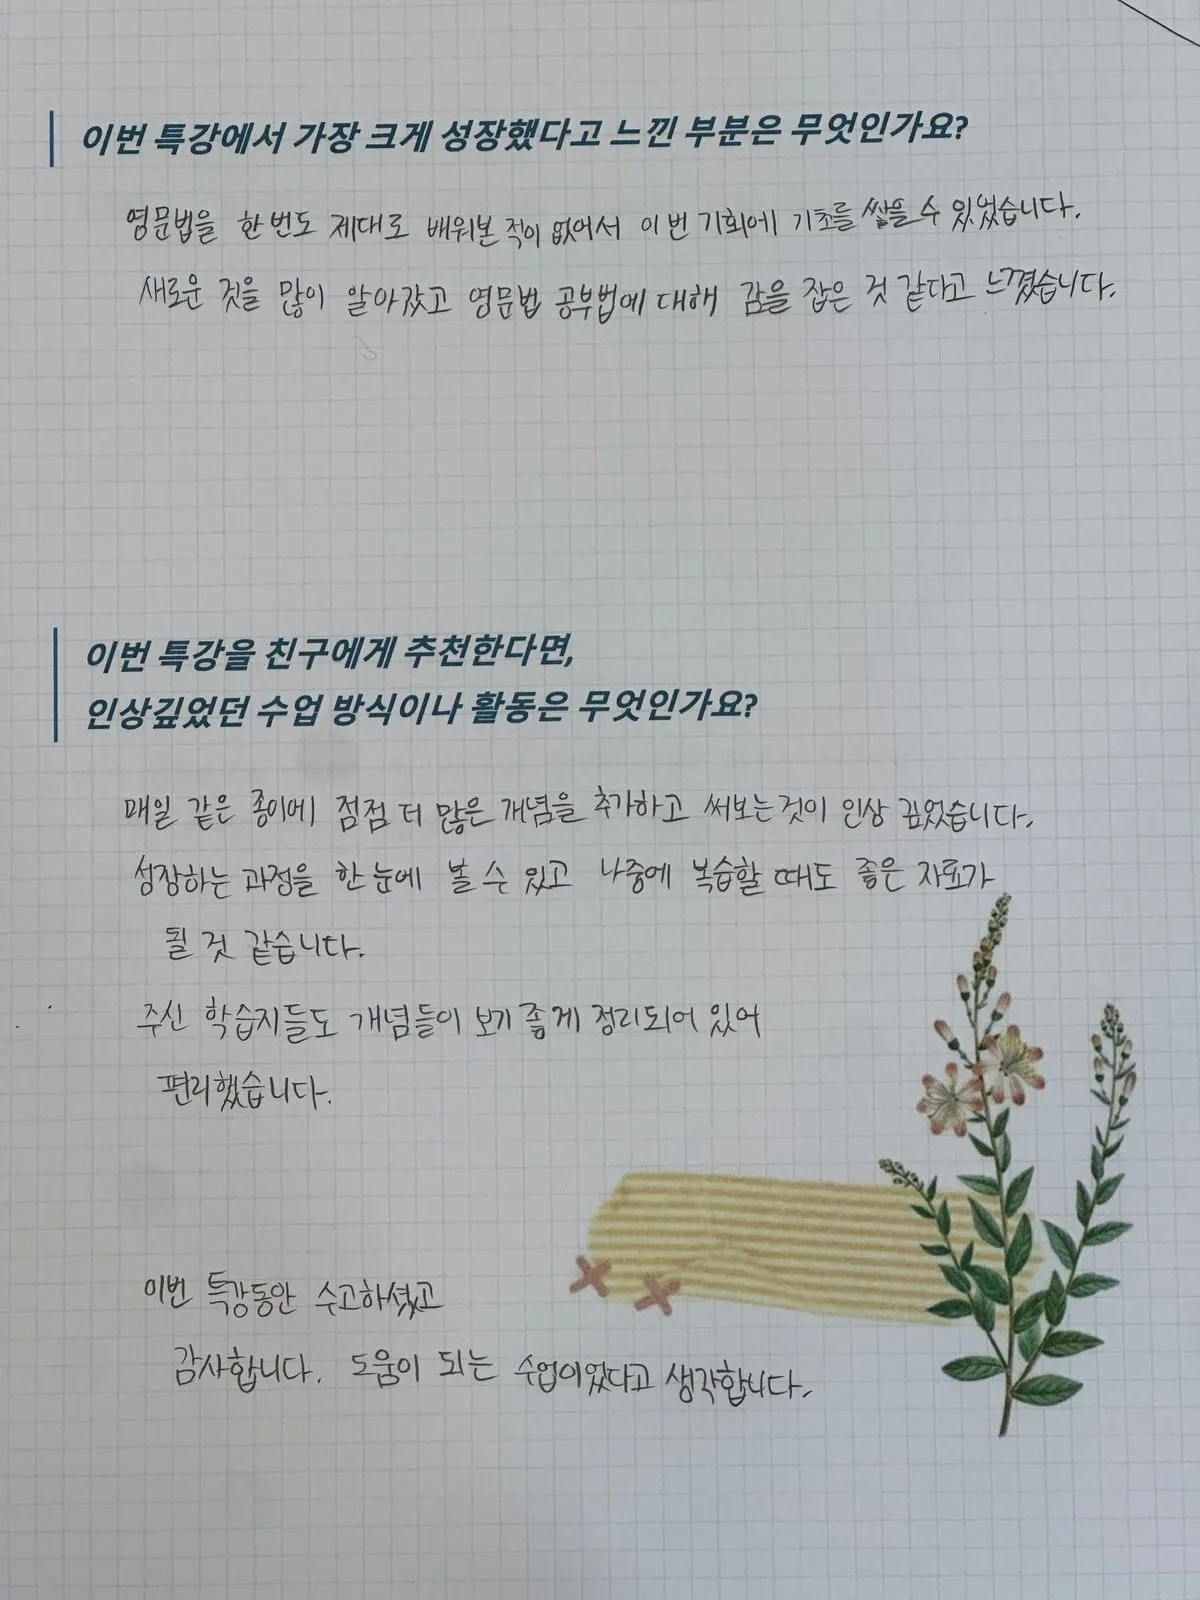 이번 특강에서 가장 크게 성장했다고 느낀 부분은 무엇인가요?
영문법을 한 번도 제대로 배워본 적이 없어서 이번 기회에 기초를 쌓을 수 있었습니다.
새로운 것을 많이 알아갔고 영문법 공부법에 대해 감을 잡은 것 같다고 느꼈습니다.
이번 특강을 친구에게 추천한다면,
인상깊었던 수업 방식이나 활동은 무엇인가요?
매일 같은 종이에 점점 더 많은 개념을 추가하고 써보는것이 인상 깊었습니다.
성장하는 과정을 한 눈에 볼 수 있고 나중에 복습할 때도 좋은 자료가
될 것 같습니다.
주신 학습지들도 개념들이 보기 좋게 정리되어 있어
편리했습니다.
이번 특강동안 수고하셨고
감사합니다. 도움이 되는 수업이었다고 생각합니다.